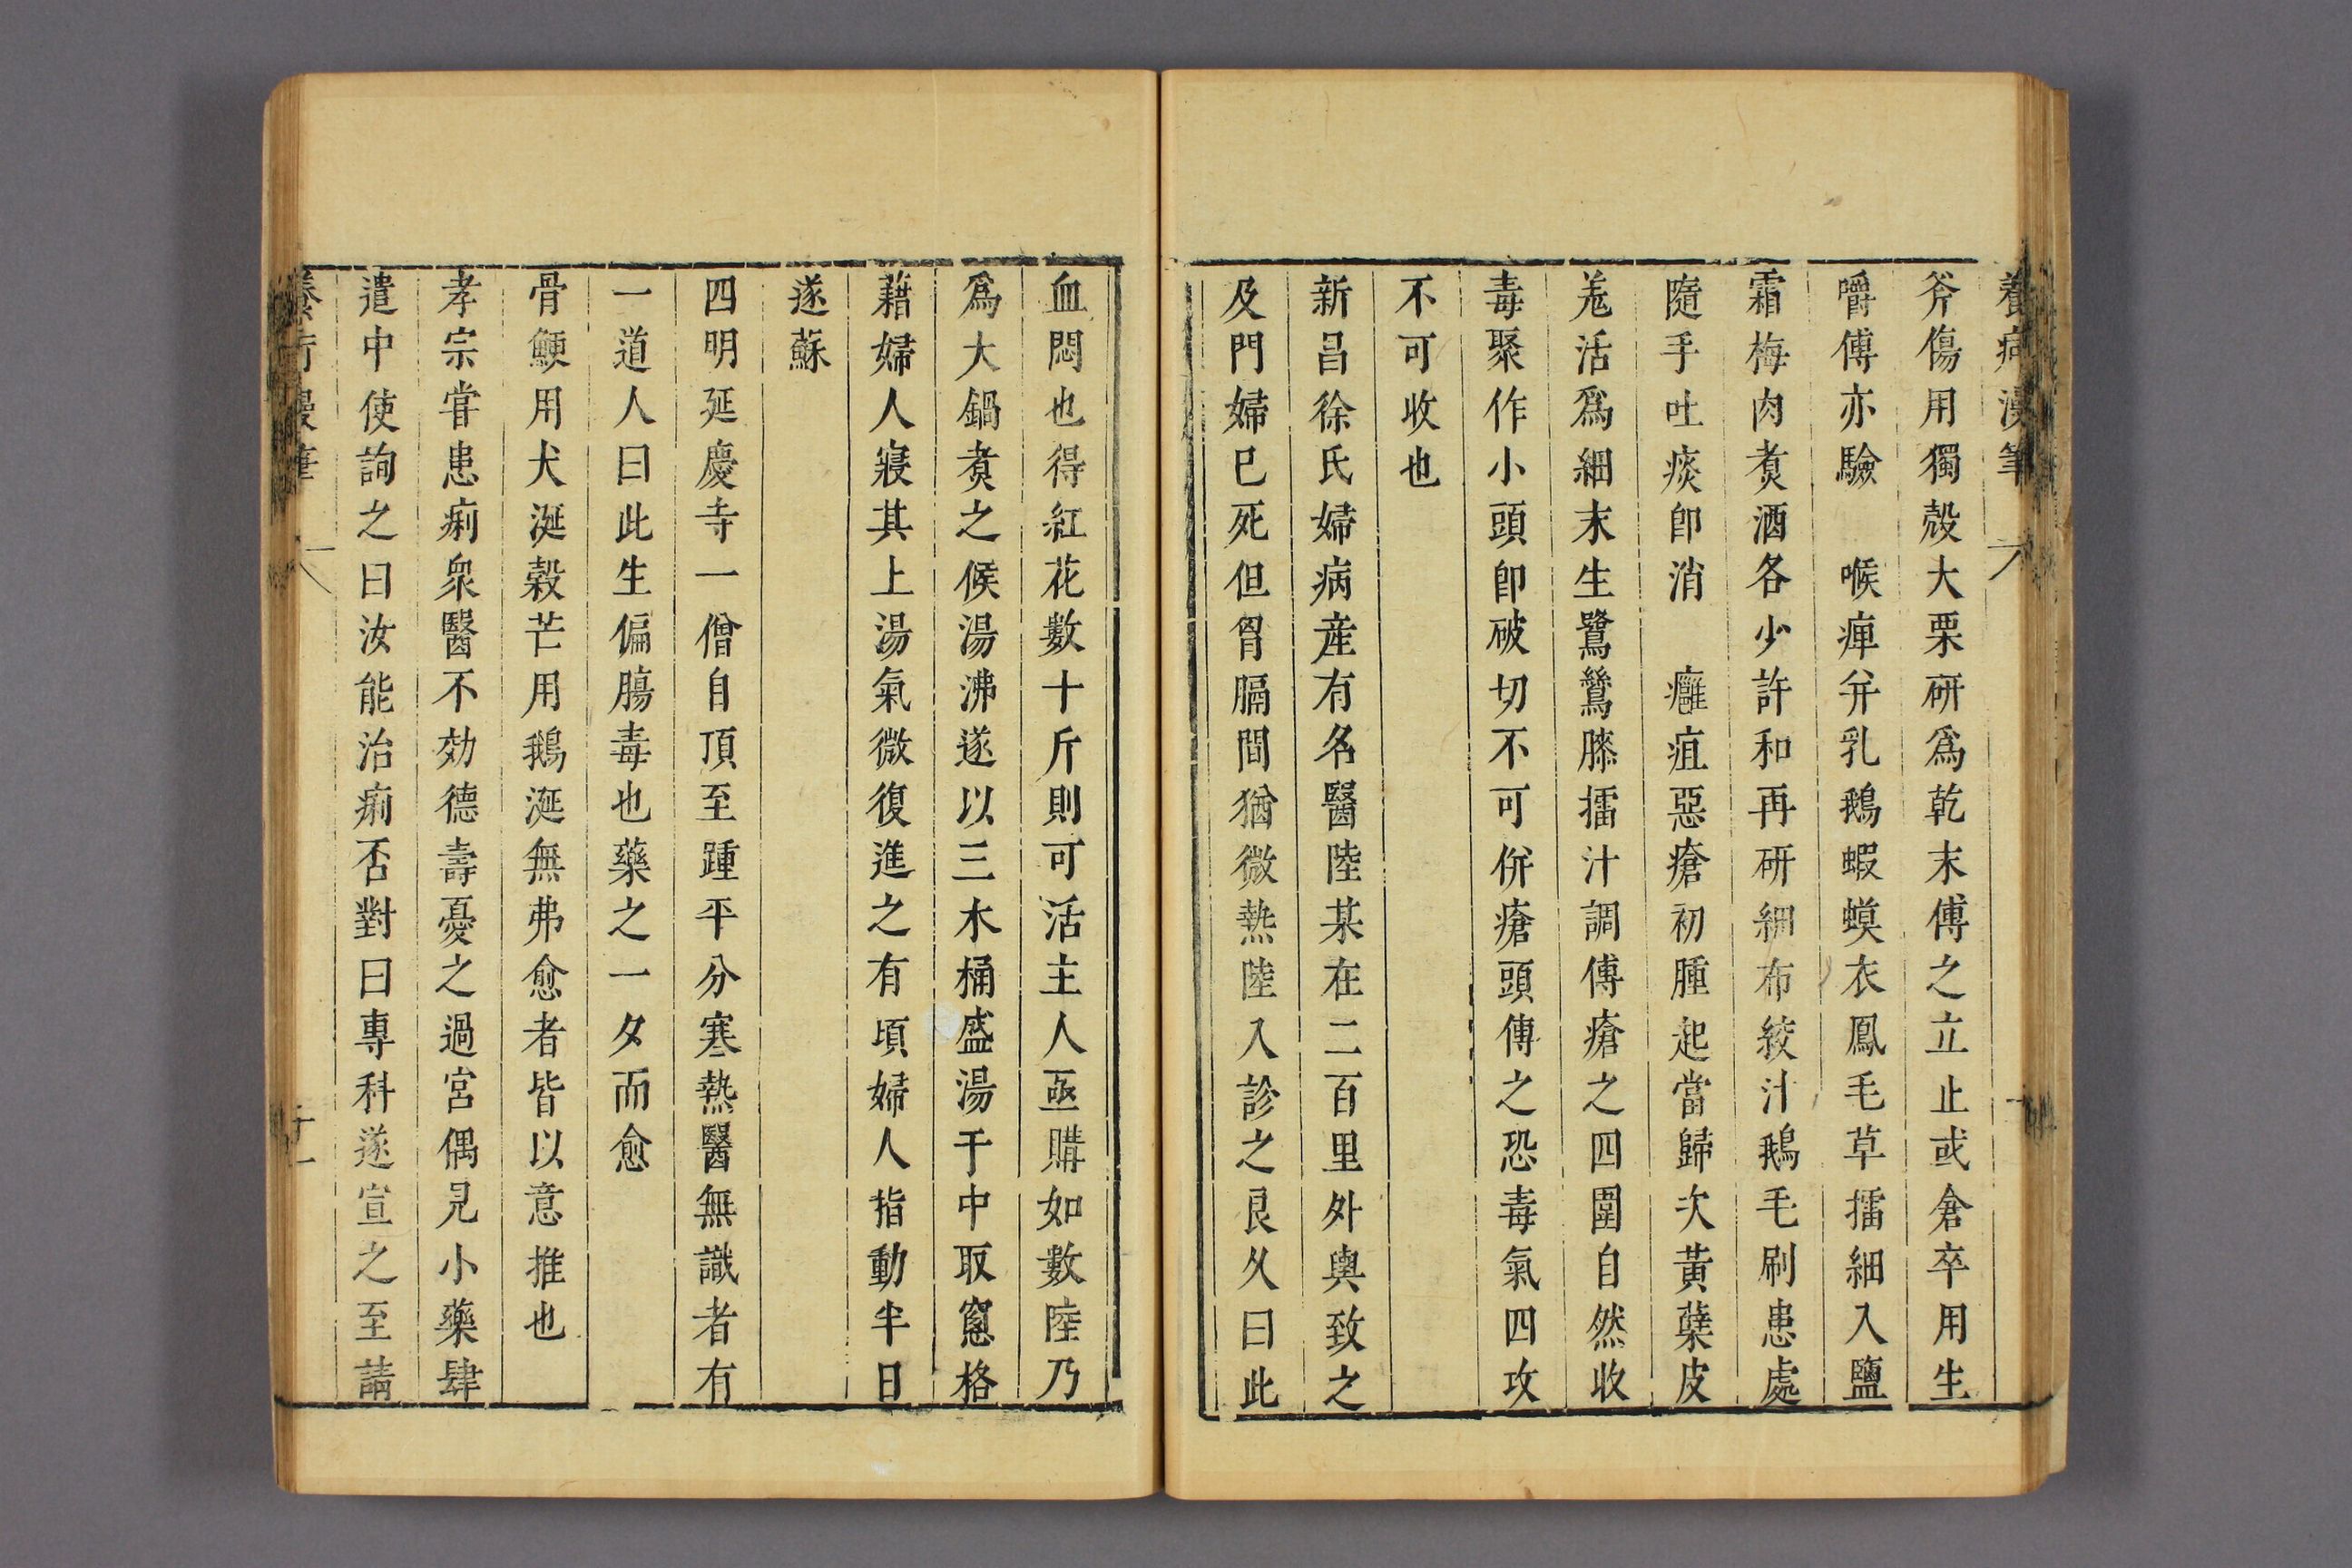 養疴漫筆
斧傷用獨殼大栗研爲乾末傅之立止或倉卒用生
嚼傅亦驗　喉痺并乳鵝蝦蟆衣鳳毛草擂細入鹽
霜梅肉煑酒各少許和再研細布絞汁鵝毛刷患處
隨手吐痰卽消　癰疽惡瘡初腫起當歸次黃蘗皮
羗活爲細末生鷺鷥膝擂汁調傅瘡之四圍自然收
毒聚作小頭卽破切不可併瘡頭傅之恐毒氣四攻
不可收也
新昌徐氏婦病産有名醫陸某在二百里外輿致之
及門婦巳死但胷膈間猶微熱陸入診之良久曰此
血悶也得紅花數十斤則可活主人亟購如數陸乃
爲大鍋煑之候湯沸遂以三木桶盛湯于中取窻格
藉婦人寢其上湯氣微復進之有頃婦人指動半日
遂蘇
四明延慶寺一僧自頂至踵平分寒熱醫無識者有
一道人曰此生偏腸毒也藥之一夕而愈
骨鯁用犬涎榖芒用鵝涎無弗愈者皆以意推也
孝宗甞患痢衆醫不効德壽憂之過宮偶見小藥肆
遣中使詢之曰汝能治痢否對曰專科遂宣之至請